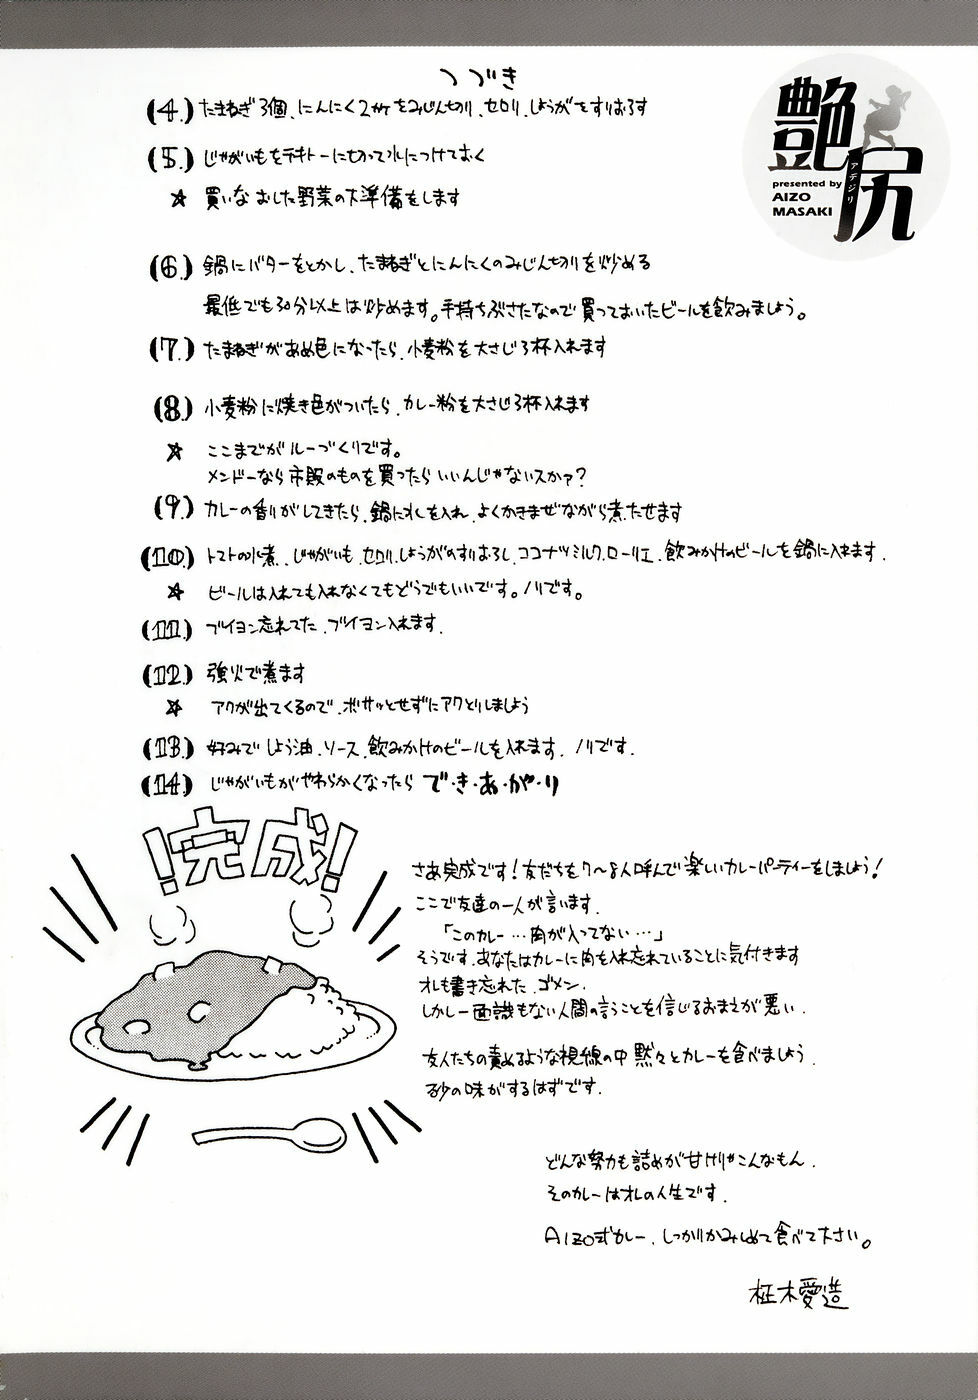 つづき
艶尻
アデジリ
presented by
AIZO
MASAKI
(4.) たまねぎ3個、にんにく2ヶをみじん切り、セロリ、しょうがをすりおろす
(5.) じゃがいもをテキトーに切って水につけておく
☆ 買いなおした野菜の下準備をします
(6.) 鍋にバターをとかし、たまねぎとにんにくのみじん切りを炒める
最低でも30分以上は炒めます。手持ちぶさたなので買っておいたビールを飲みましょう。
(7.) たまねぎがあめ色になったら、小麦粉を大さじ3杯入れます
(8.) 小麦粉に焼き色がついたら、カレー粉を大さじ3杯入れます
☆ ここまでがルーづくりです。
メンドーなら市販のものを買ったらいいんじゃないスかァ?
(9.) カレーの香りがしてきたら、鍋に水を入れ、よくかきまぜながら煮たせます
(10.) トマトの水煮、じゃがいも、セロリ、しょうがのすりおろし、ココナツミルク、ローリエ、飲みかけのビールを鍋に入れます.
☆ ビールは入れても入れなくてもどうでもいいです。ノリです。
(11.) ブイヨン忘れてた、ブイヨン入れます.
(12.) 強火で煮ます
☆ アクが出てくるので、ボサッとせずにアクとりしましょう
(13.) 好みでしょう油、ソース、飲みかけのビールを入れます. ノリです.
(14.) じゃがいもがやわらかくなったら で・き・あ・が・り
!完成!
さあ完成です!友だちを7〜8人呼んで楽しいカレーパーティーをしましょう!
ここで友達の一人が言います.
「このカレー…肉が入ってない…」
そうです、あなたはカレーに肉を入れ忘れていることに気付きます
オレも書き忘れた、ゴメン.
しかし一面識もない人間の言うことを信じるおまえが悪い.
友人たちの責めるような視線の中 黙々とカレーを食べましょう.
砂の味がするはずです.
どんな努力も詰めが甘けりゃこんなもん.
そのカレーはオレの人生です.
AIZO式カレー、しっかりかみしめて食べて下さい。
柾木愛造